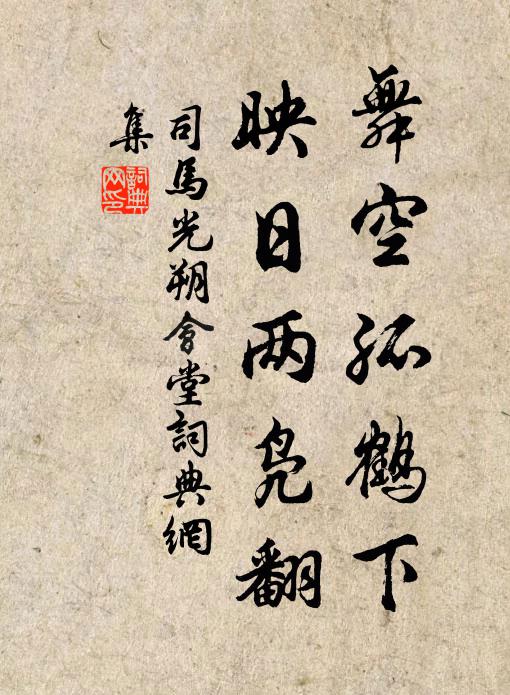 舞空孤鶴下
映日两凫翻
司馬光朔會堂詞典網
集
詞典
网印